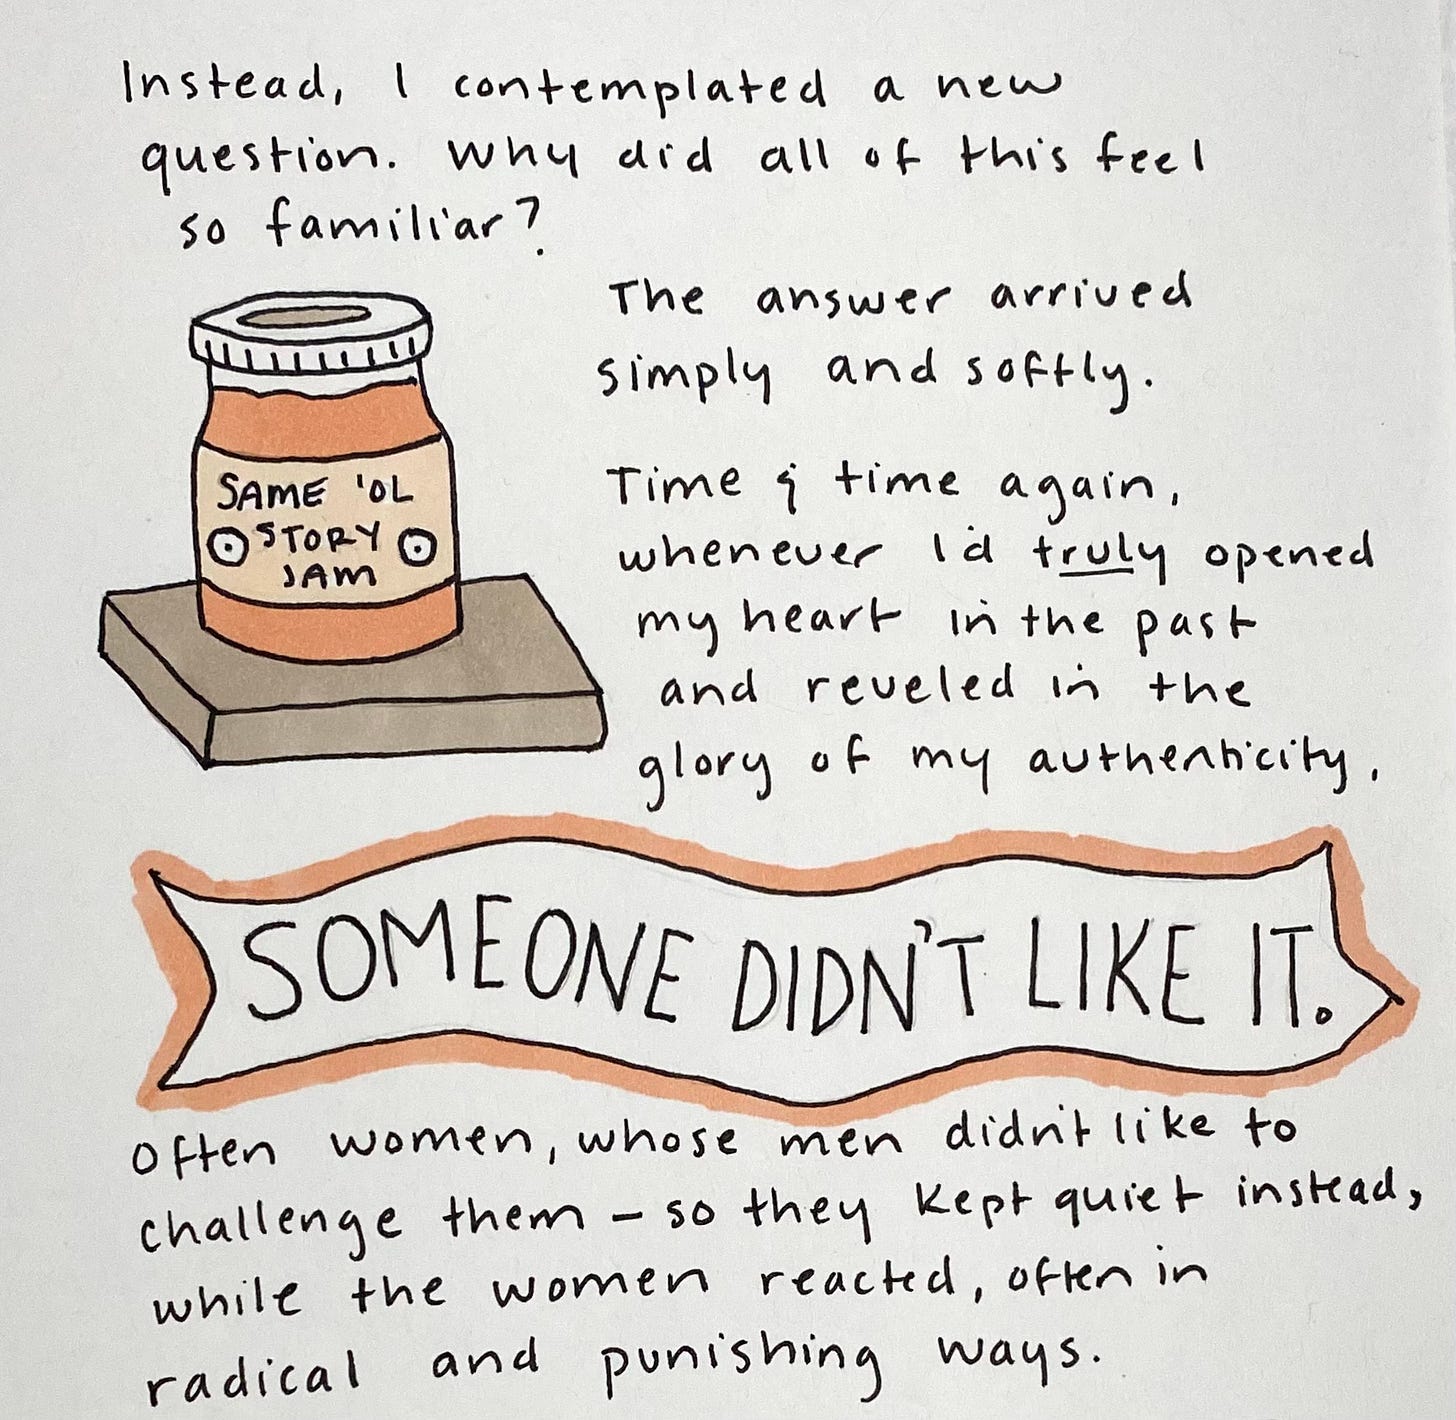 Instead, I contemplated a new
question. Why did all of this feel
so familiar?
The answer arrived
simply and softly.
SAME 'OL
STORY
JAM
Time & time again,
whenever I'd truly opened
my heart in the past
and reveled in the
glory of my authenticity,
SOMEONE DIDN'T LIKE IT.
Often women, whose men didn't like to
challenge them – so they kept quiet instead,
while the women reacted, often in
radical and punishing ways.